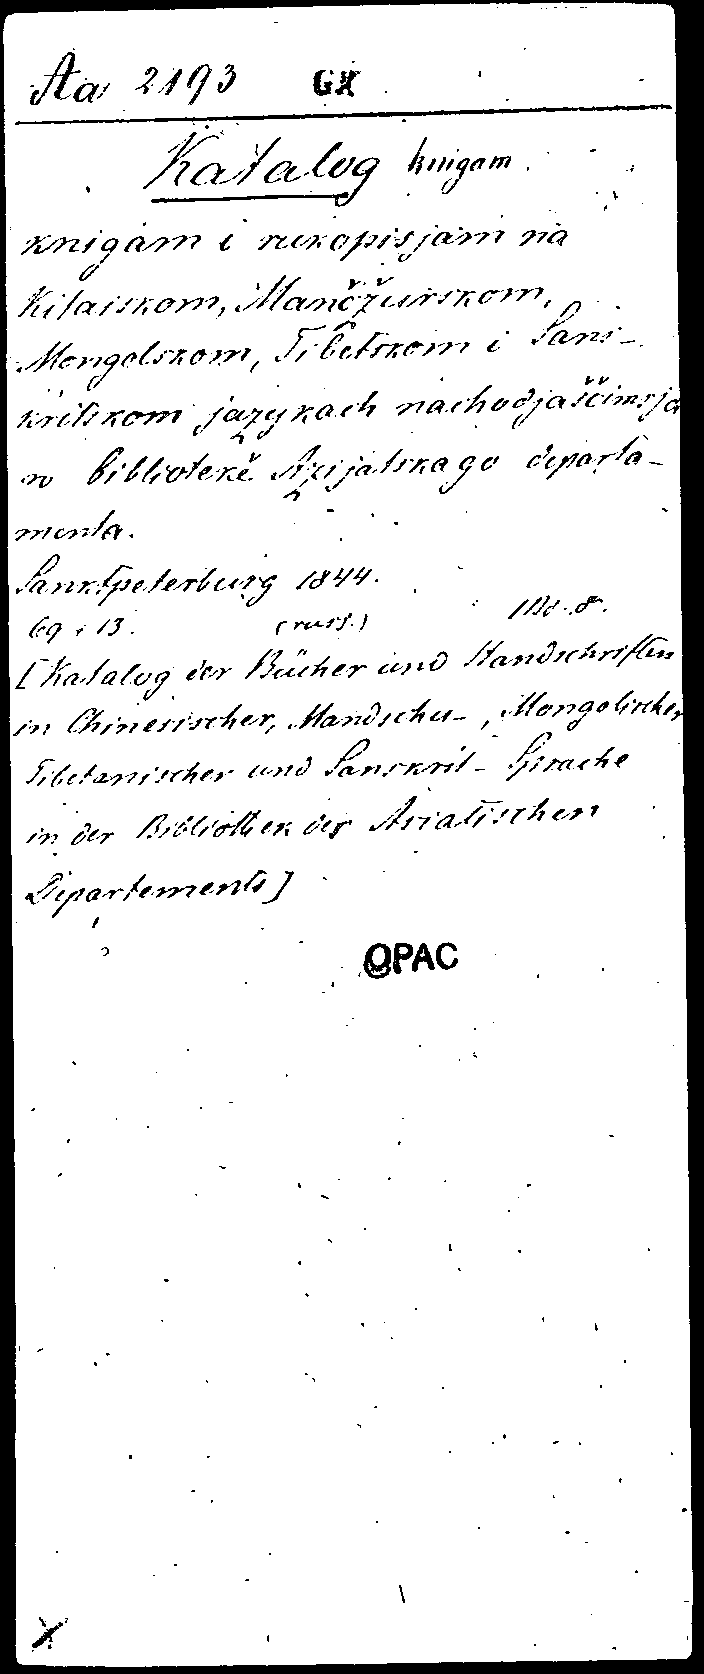 Aa 2193 GK
Katalog knigam
knigam i rukopisjam na
Kitaiskom, Mančžurskom,
Mongolskom, Tibetskom i Sans-
kritskom jazykach nachodjaščimsja
w bibliotekě Azijatskago departa-
menta.
Sanktpeterburg 1844.
(russ.) 1 Bd. 8.
[Katalog der Bücher und Handschriften
in Chinesischer, Mandschu-, Mongolischer,
Tibetanischer und Sanskrit-Sprache
in der Bibliothek des Asiatischen
Departements]
OPAC